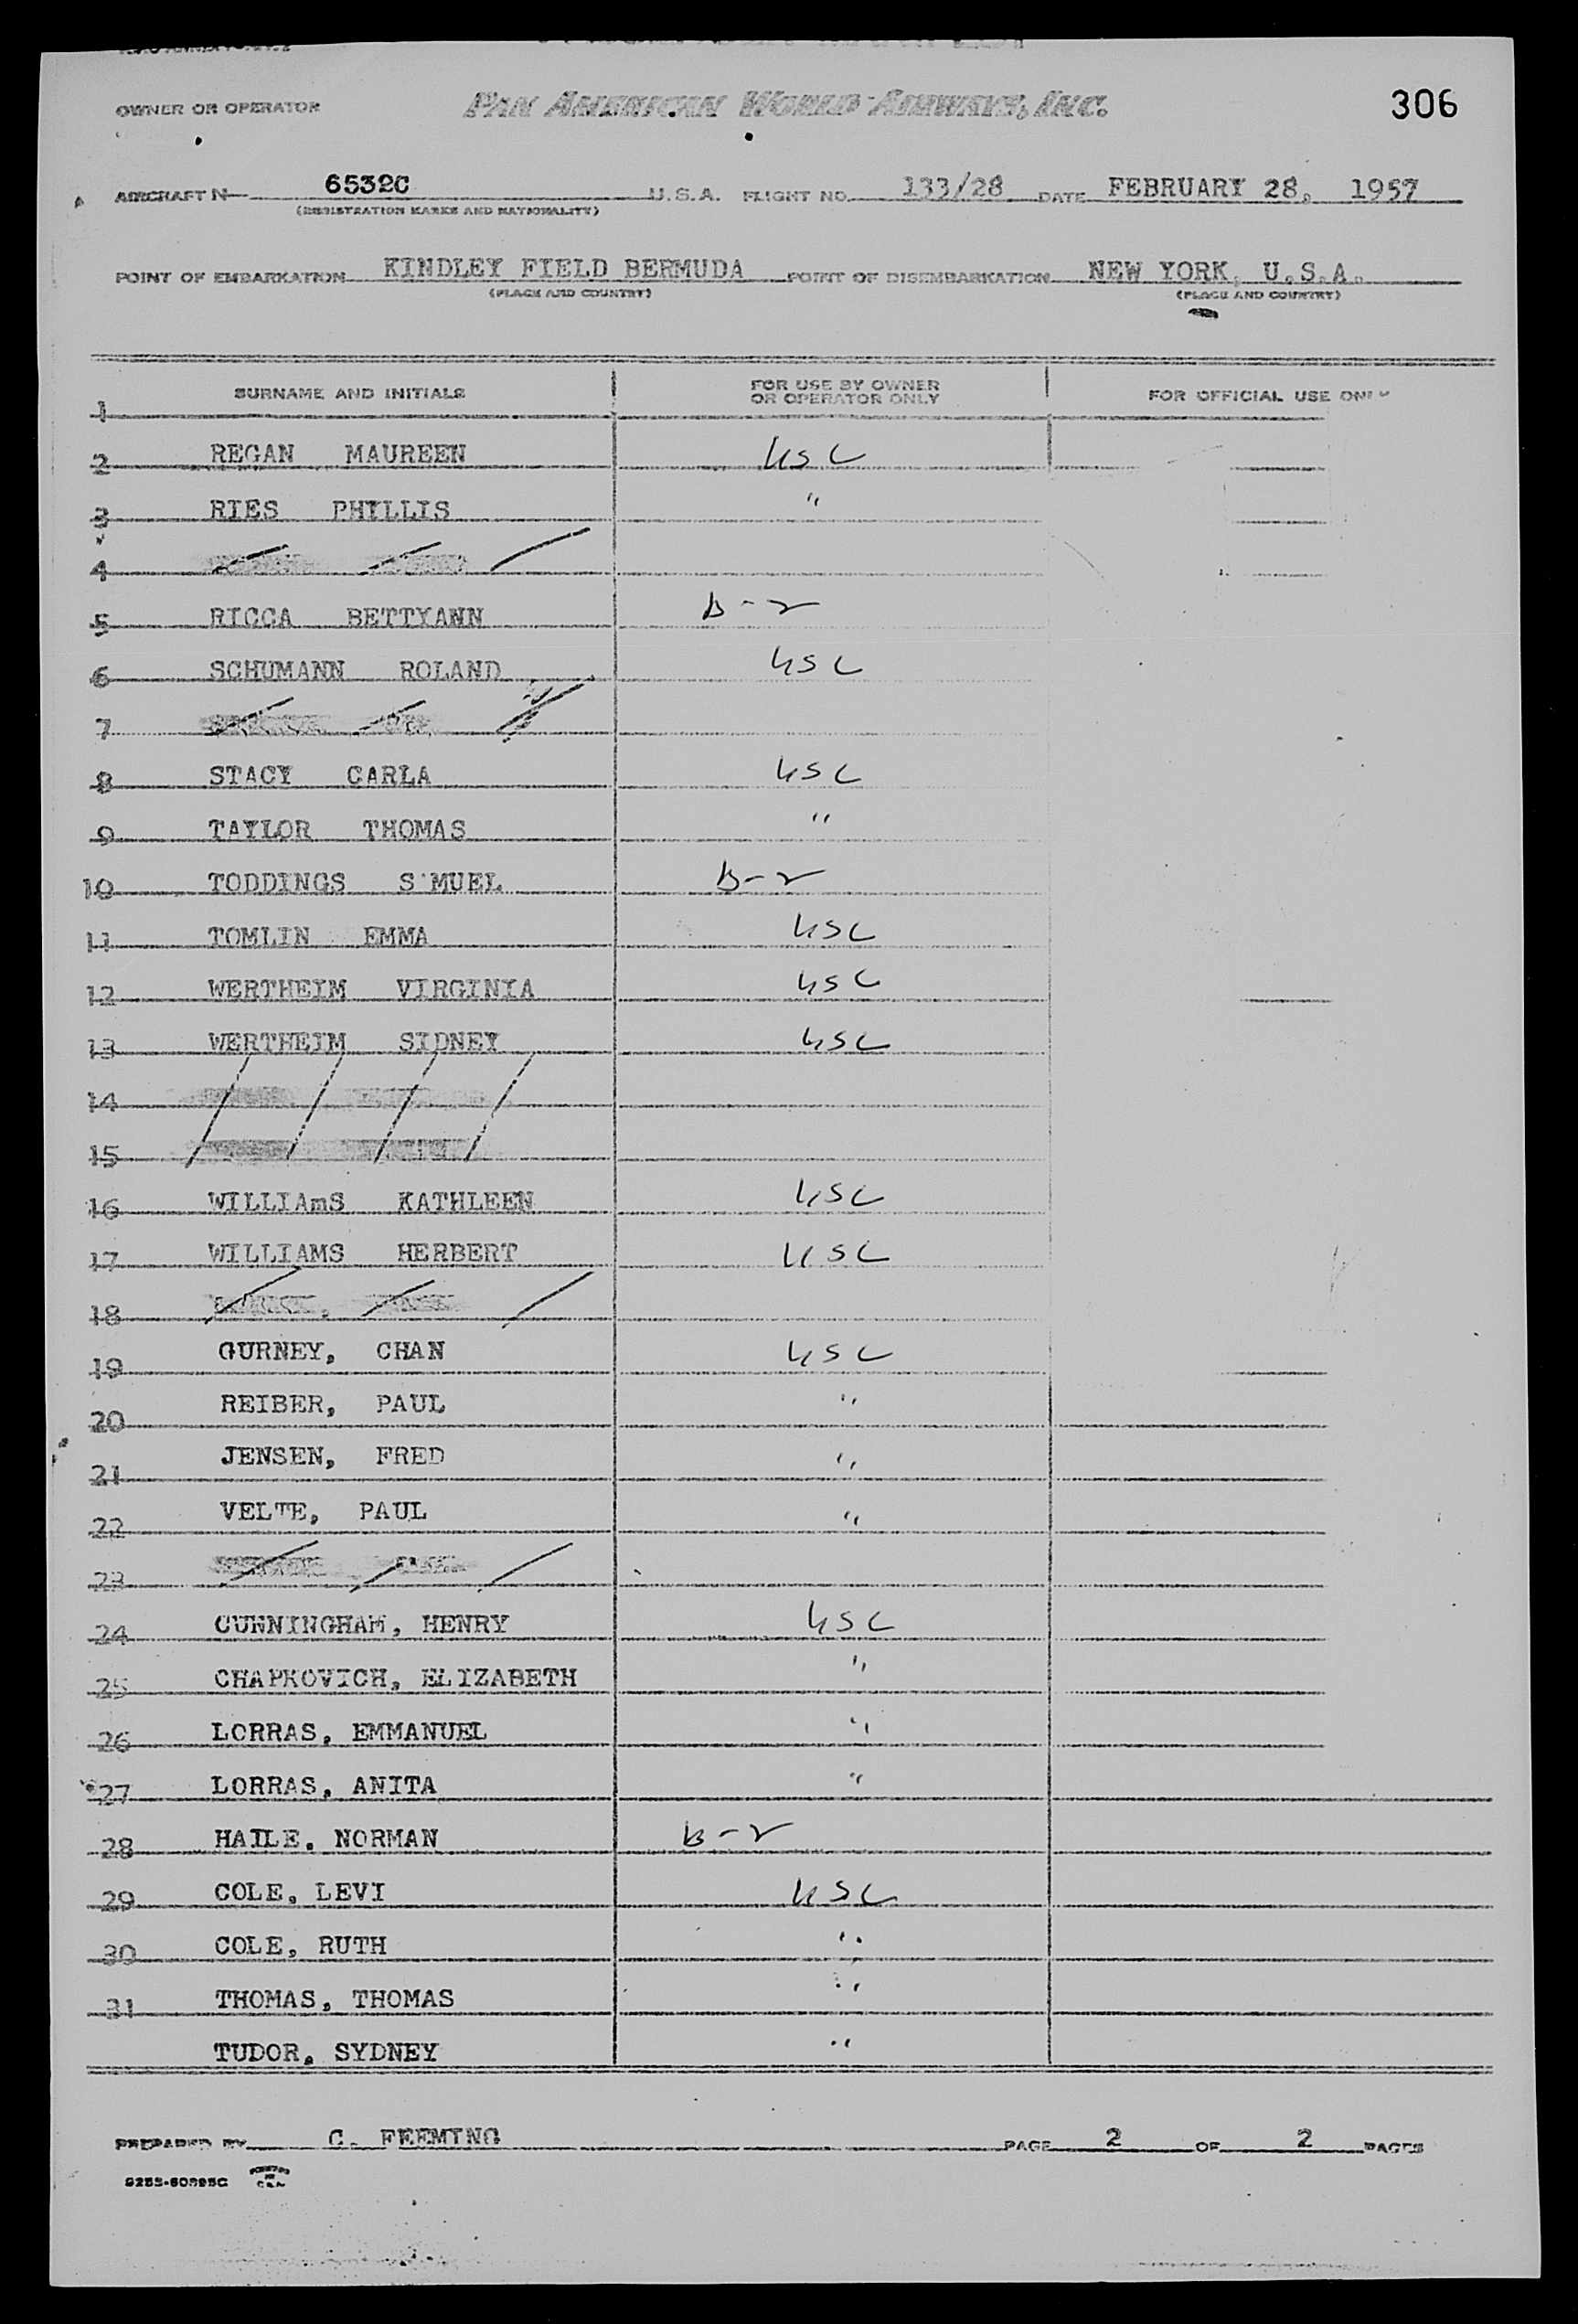 306
OWNER OR OPERATOR PAN AMERICAN WORLD AIRWAYS, INC.
AIRCRAFT N 6532C U.S.A. FLIGHT NO. 133/28 DATE FEBRUARY 28, 1957
(REGISTRATION MARKS AND NATIONALITY)
POINT OF EMBARKATION KINDLEY FIELD BERMUDA POINT OF DISEMBARKATION NEW YORK, U.S.A.
(PLACE AND COUNTRY) (PLACE AND COUNTRY)
SURNAME AND INITIALS FOR USE BY OWNER OR OPERATOR ONLY FOR OFFICIAL USE ONLY
1
2 REGAN MAUREEN USC
3 RIES PHYLLIS "
4
5 RICCA BETTYANN B-2
6 SCHUMANN ROLAND USC
7
8 STACY CARLA USC
9 TAYLOR THOMAS "
10 TODDINGS S'MUEL B-2
11 TOMLIN EMMA USC
12 WERTHEIM VIRGINIA USC
13 WERTHEIM SIDNEY USC
14
15
16 WILLIAmS KATHLEEN USC
17 WILLIAMS HERBERT USC
18
19 GURNEY, CHAN USC
20 REIBER, PAUL "
21 JENSEN, FRED "
22 VELTE, PAUL "
23
24 CUNNINGHAM, HENRY USC
25 CHAPKOVICH, ELIZABETH "
26 LORRAS, EMMANUEL "
27 LORRAS, ANITA "
28 HAILE, NORMAN B-2
29 COLE, LEVI USC
30 COLE, RUTH "
31 THOMAS, THOMAS "
TUDOR, SYDNEY "
PREPARED BY C. FEEMING PAGE 2 OF 2 PAGES